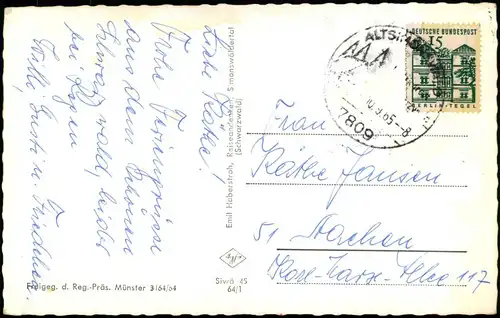 Liebe Käthe!
Frohe Feriengrüsse
aus dem schönen
Schwarzwald, leider
bei Regen
Willi, Gusti u. Friedhelm.
Emil Haberstroh, Reiseandenken, Simonswäldertal
(Schwarzwald)
Freigeg. d. Reg.-Präs. Münster 3164/64
Siwä 45
64/1
ALTSI
10.9.65.-8
7809
DEUTSCHE BUNDESPOST
15
BERLIN-TEGEL
Frau
Käthe Jansen
51 Aachen
117